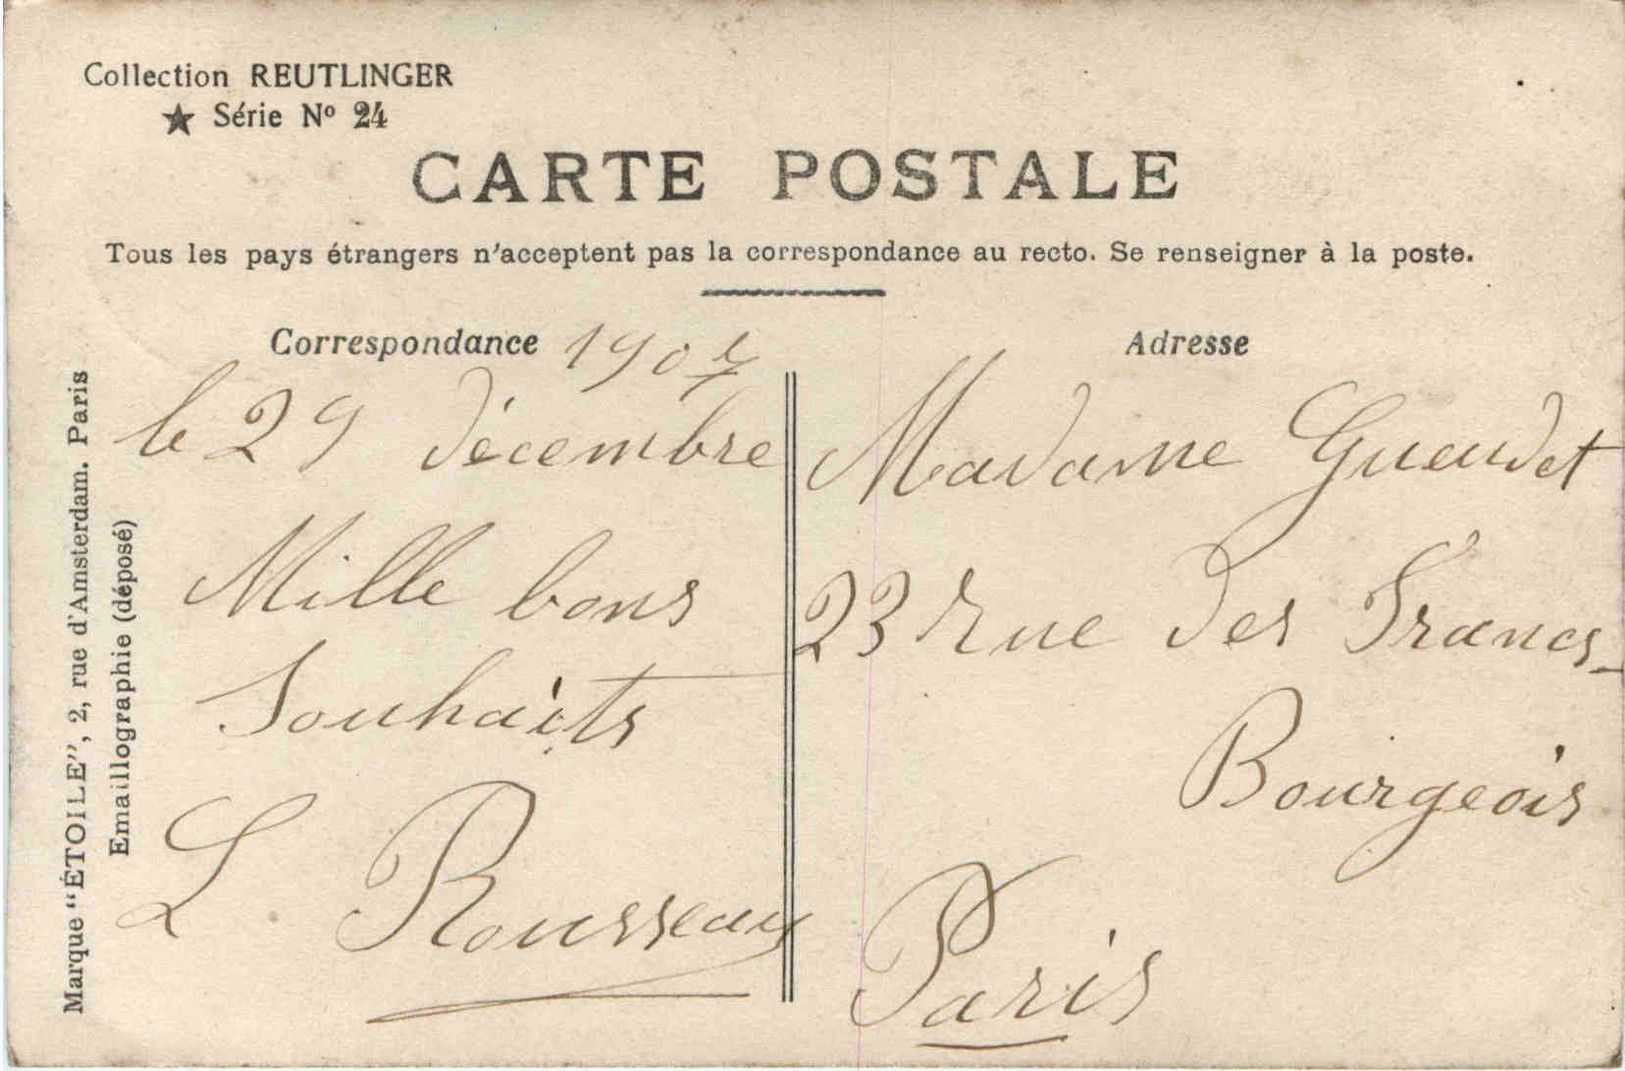 Collection REUTLINGER
★ Série Nº 24
CARTE POSTALE
Tous les pays étrangers n'acceptent pas la correspondance au recto. Se renseigner à la poste.
Correspondance 1907
le 29 décembre
Mille bons
Souhaits
L. Rousseau
Adresse
Madame Gueudet
23 Rue des Francs-
Bourgeois
Paris
Marque "ÉTOILE", 2, rue d'Amsterdam. Paris
Emaillographie (déposé)